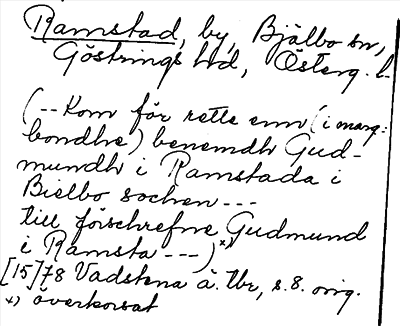 Ramstad, by, Bjälbo sn,
Göstrings hd, Österg. l.
(-- Kom för rette enn (i marg:
bondhe) benemdh Gud-
mundh i Ramstada i
Bielbo sochen ---
till förschrefne Gudmund
i Ramsta ---) x)
[15]78 Vadstena ä. tbr, s. 8. orig.
x) överkorsat